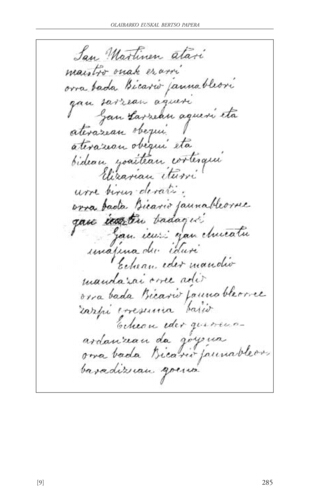 OLAIRABERRO EUSKAL BERTSO PAPERA
San Martinen atari
maistro onak ezarri
orra bada Bicario jaunableori
gan sarzean agueri
Gan sarzean agueri eta
aterazean obequi
aterazean obequi eta
bidean yoaitean cortesqui
Elizarian iturri
urre birus
orra bada Bicario jaunableorrec
gau badaqui
Gan icusi gan chucatu
imajina du iduri
Echean eder mandio
mandazai orrec
orra bada Bicario jaunableorrec
zazpi
Echean eder
ardanzean da goyena
orra bada Bicario jaunableorr
baradizuan goena
[9]
285